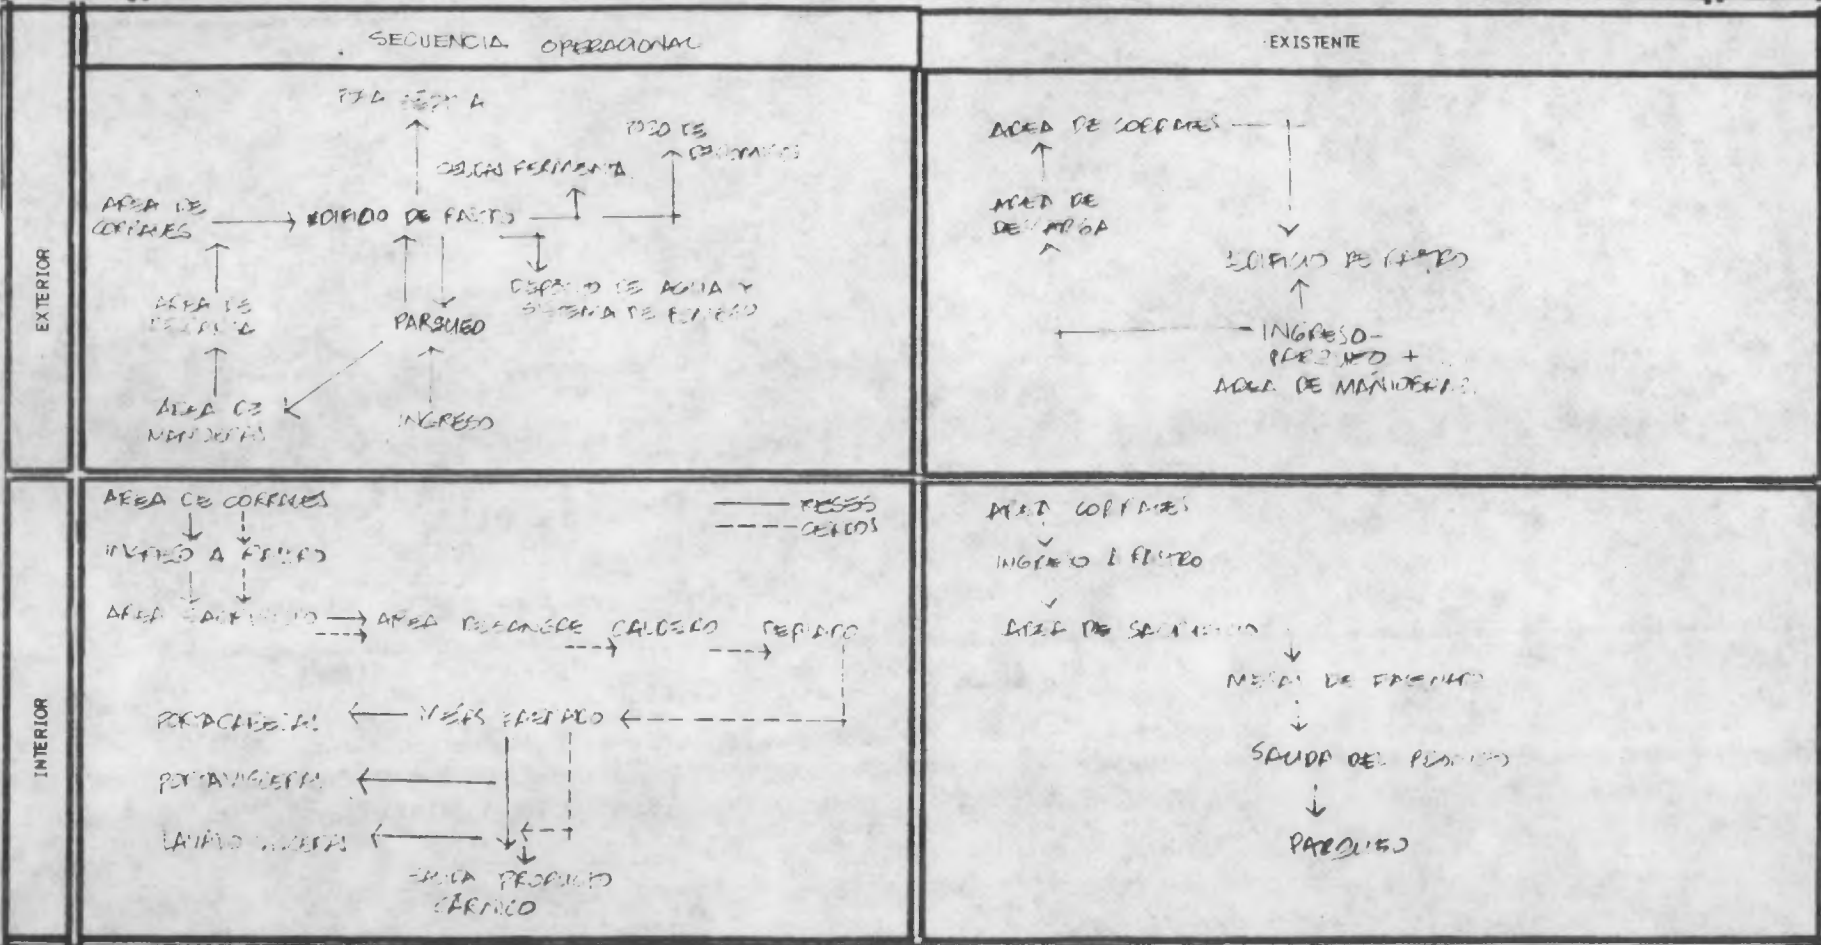 SECUENCIA OPERACIONAL
EXISTENTE
EXTERIOR
POZO DE
AREA DE
CORRALES
EDIFICIO DE RASTRO
DEPOSITO DE AGUA Y
SISTEMA DE BOMBEO
AREA DE
PARQUEO
AREA DE
MANIOBRAS
INGRESO
AREA DE CORRALES
AREA DE
DESCARGA
EDIFICIO DE RASTRO
INGRESO-
PARQUEO +
AREA DE MANIOBRAS
INTERIOR
AREA DE CORRALES
RESES
CERDOS
INGRESO A RASTRO
AREA SACRIFICIO
AREA DESANGRE
CALDERO
DEPILADO
PORTACABEZAS
FAENADO
PORTAVISCERAS
LAVADO VISCERAS
SALIDA PRODUCTO
CÁRNICO
AREA CORRALES
INGRESO A RASTRO
AREA DE SACRIFICIO
MESAS DE FAENADO
SALIDA DEL PRODUCTO
PARQUEO